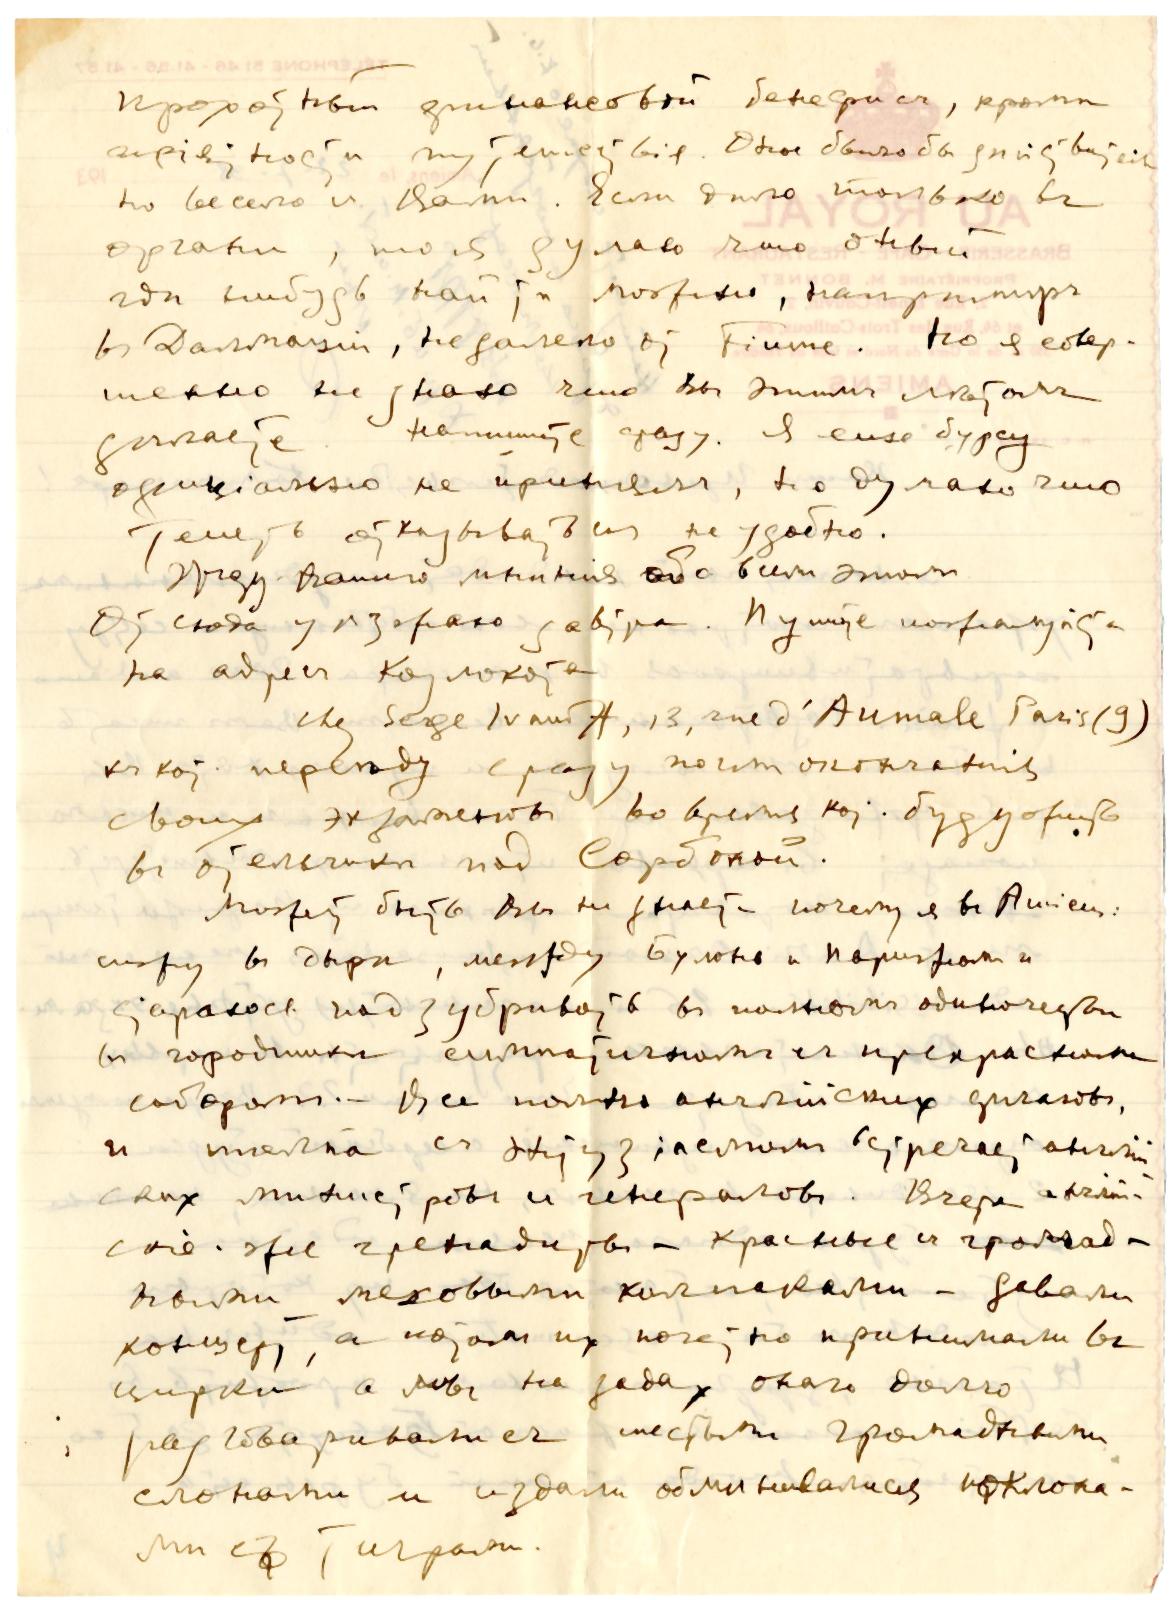 финансовый бенефисъ, кромѣ
путешествія. Оно было бы
но весело съ Вами. Если дѣло только въ
, то я думаю что
гдѣ нибудь найти можно, напримѣръ
въ Далмаціи, недалеко отъ Fiume. Но я совер-
шенно не знаю что Вы этимъ лѣтомъ
дѣлаете. Напишите сразу. Я еще бурсу
оффиціально не принялъ, но думаю что
теперь отказываться неудобно.
Жду Вашего мнѣнія обо всемъ этомъ
Отсюда уѣзжаю завтра. Пишите пожалуйста
на адресъ
chez Serge Ivanoff, 13, rue d'Aumale Paris (9)
къ кот. переѣду сразу послѣ окончанія
своихъ экзаменовъ во время кот. буду жить
въ отельчикѣ под Сорбоной.
Можетъ быть Вы не знаете почему я въ Amiens:
сижу въ дырѣ, между Булонь и Парижемъ и
стараюсь подзубривать въ полномъ одиночествѣ
въ городишкѣ симпатичномъ съ прекраснымъ
соборомъ. – Все полно англійских флаговъ,
и съ энтузіазмомъ встречает англій-
ских министровъ и генераловъ. Вчера англій-
скіе же гренадеры – красные съ громад-
ными меховыми колпаками – давали
концерт, а потом их почетно принимали въ
циркѣ а мы на задах онаго долго
разговаривали съ шестью громадными
слонами и издали обменивались поклона-
ми съ Тиграми.
AU ROYAL
BRASSERIE - CAFÉ - RESTAURANT
PROPRIÉTAIRE M. BONNET
Rue des Trois Cailloux
AMIENS
TÉLÉPHONE 51.46 - 41.36 - 41.57
193